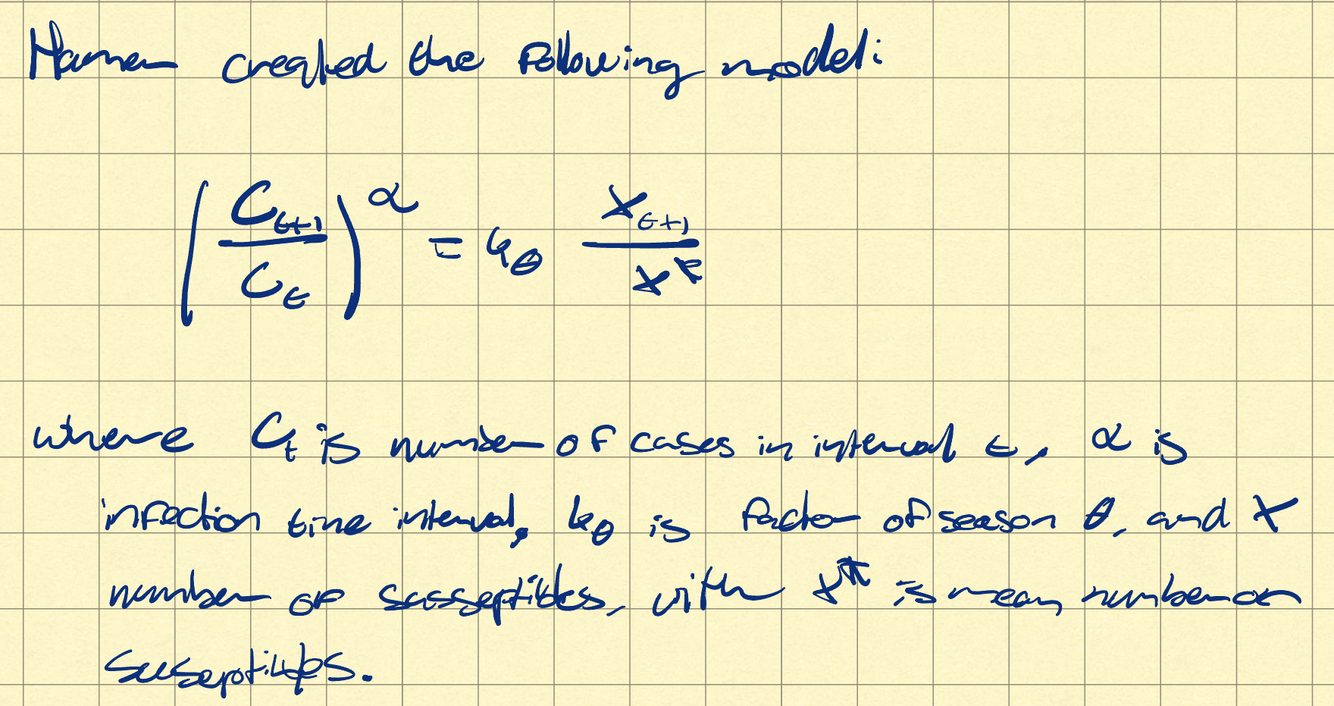 Hamer created the following model:
(C_{t+1} / C_t)^α = k_θ X_{t+1} / X^*
where C_t is number of cases in interval t, α is
infection time interval, k_θ is factor of season θ, and X
number of susseptibles, with X^* is mean number of
suseptibles.